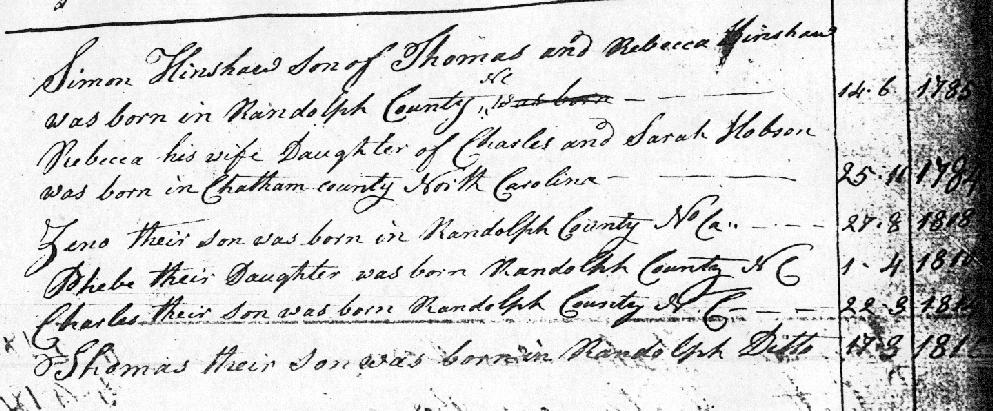 Simon Hinshaw son of Thomas and Rebecca Hinshaw
was born in Randolph County NC was born 14.6 1785
Rebecca his wife Daughter of Charles and Sarah Hobson
was born in Chatham county North Carolina 25.11 1784
Zeno their son was born in Randolph County No Ca.. 27.8 1808
Phebe their Daughter was born Randolph County N C 1.4 1810
Charles their son was born Randolph County N C 22.3
Thomas their son was born in Randolph Ditto 17.3